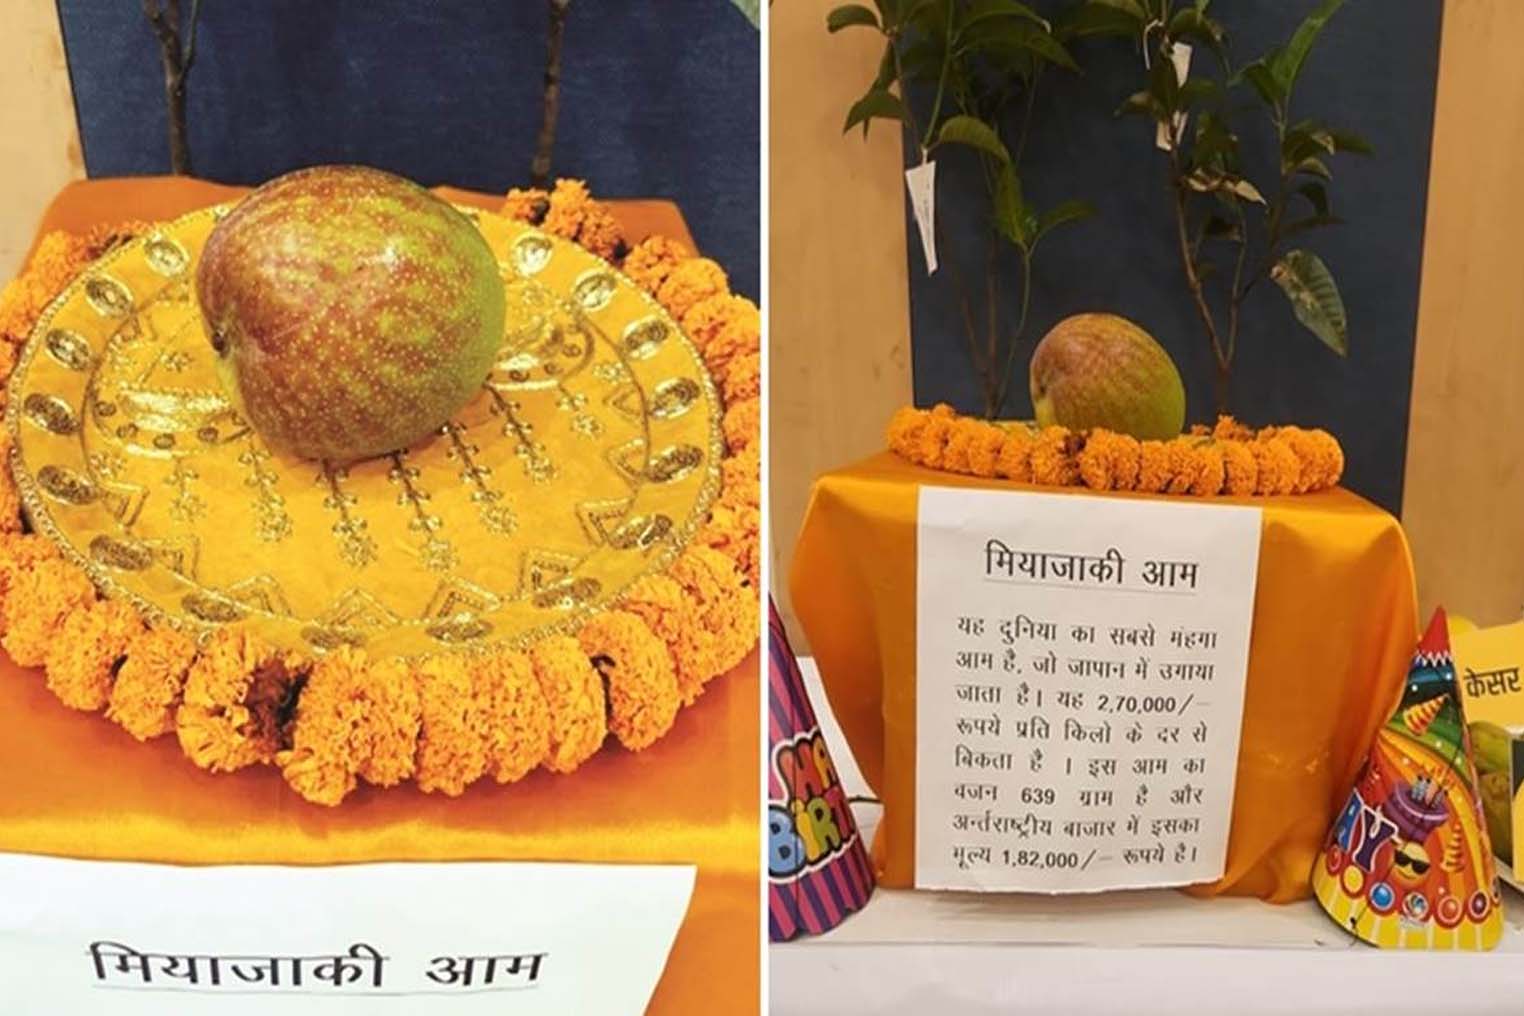 मियाजाकी आम
मियाजाकी आम
यह दुनिया का सबसे मंहगा
आम है, जो जापान में उगाया
जाता है। यह 2,70,000/-
रूपये प्रति किलो के दर से
बिकता है । इस आम का
वजन 639 ग्राम है और
अर्न्तराष्ट्रीय बाजार में इसका
मूल्य 1,82,000/- रूपये है।
केसर